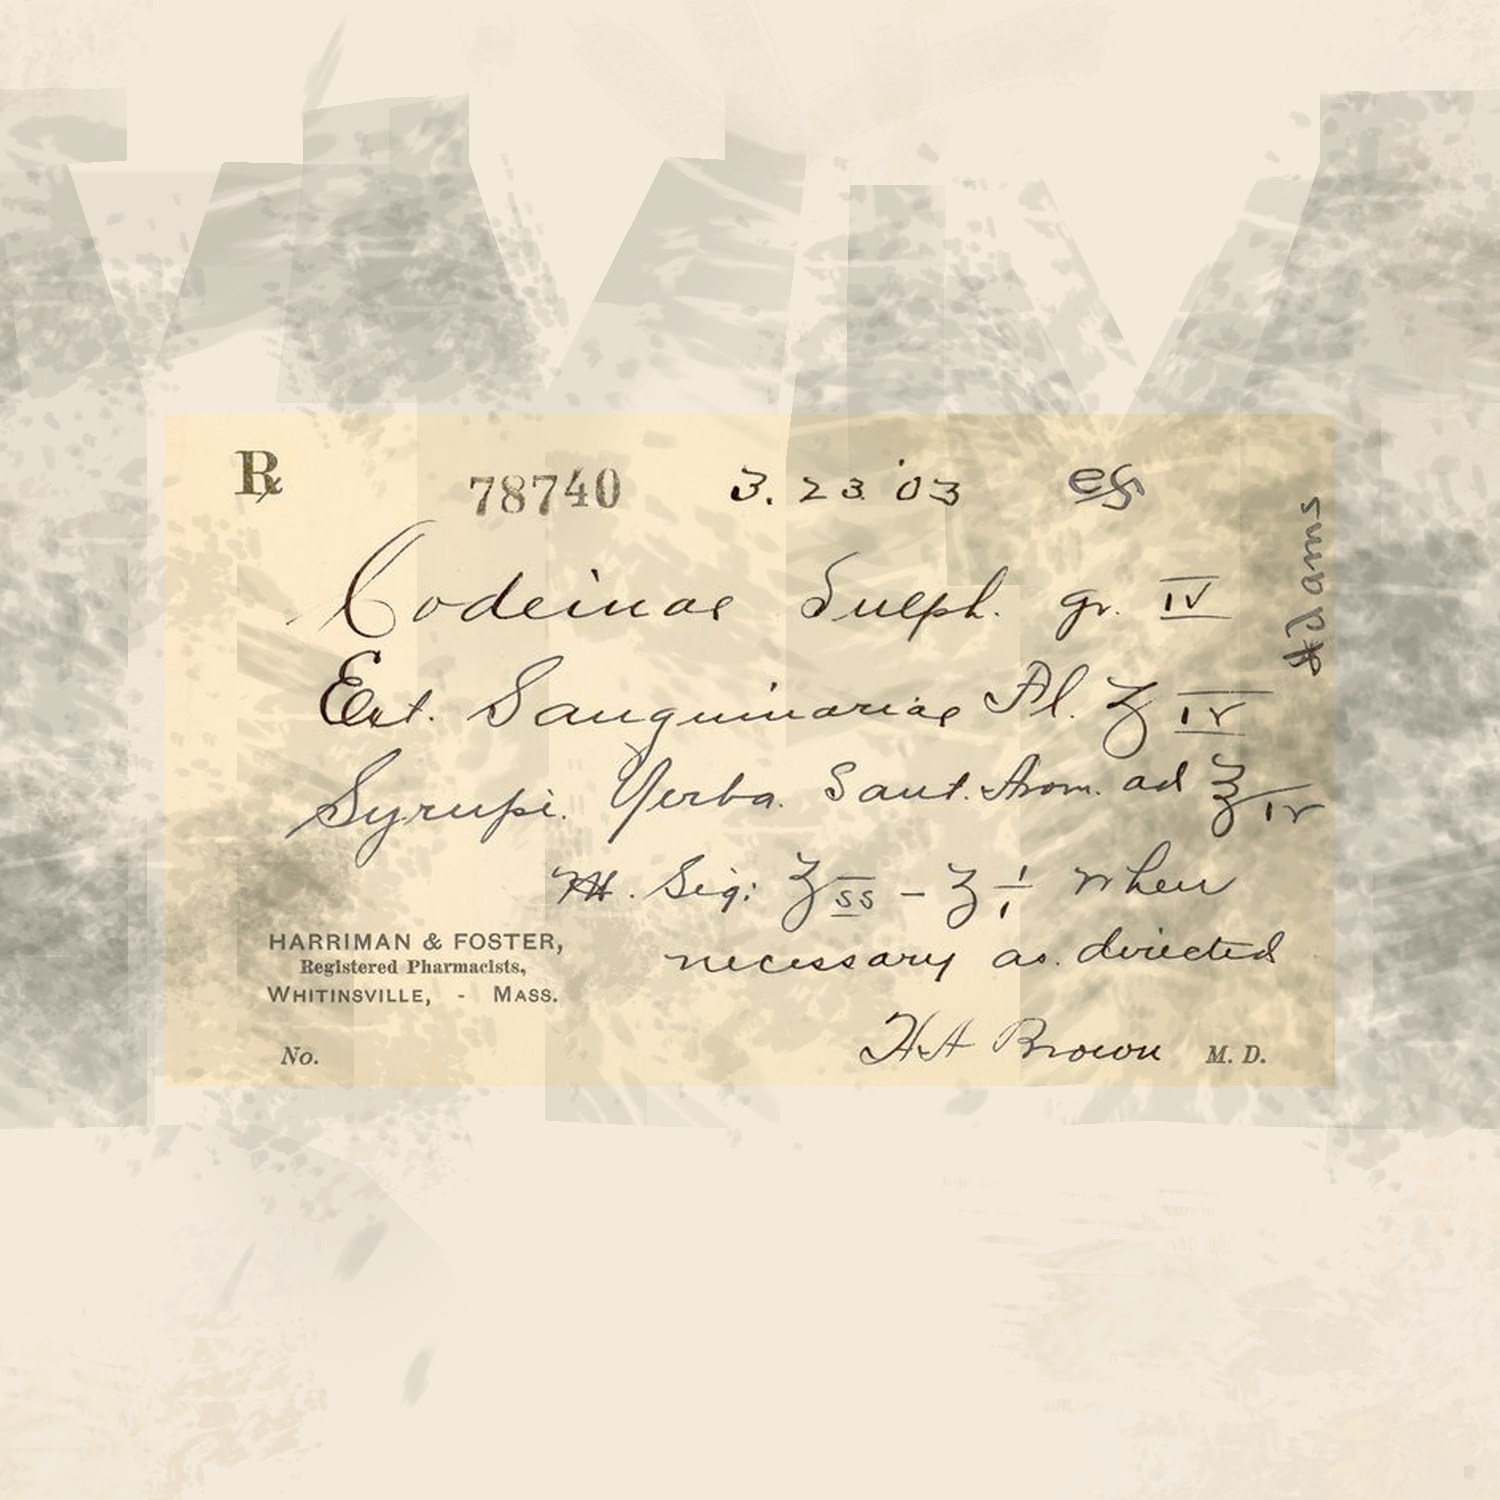 ℞ 78740 3.23.'03 eG
Codeinae Sulph. gr. IV
Ext. Sanguinariae Fl. ʒ IV
Syrupi. Yerba. Sant. Arom. ad ℥ IV
M. Sig: ʒ ss - ʒ i when
necessary as directed
HARRIMAN & FOSTER,
Registered Pharmacists,
WHITINSVILLE, - MASS.
No.
HA Brown M. D.
Adams